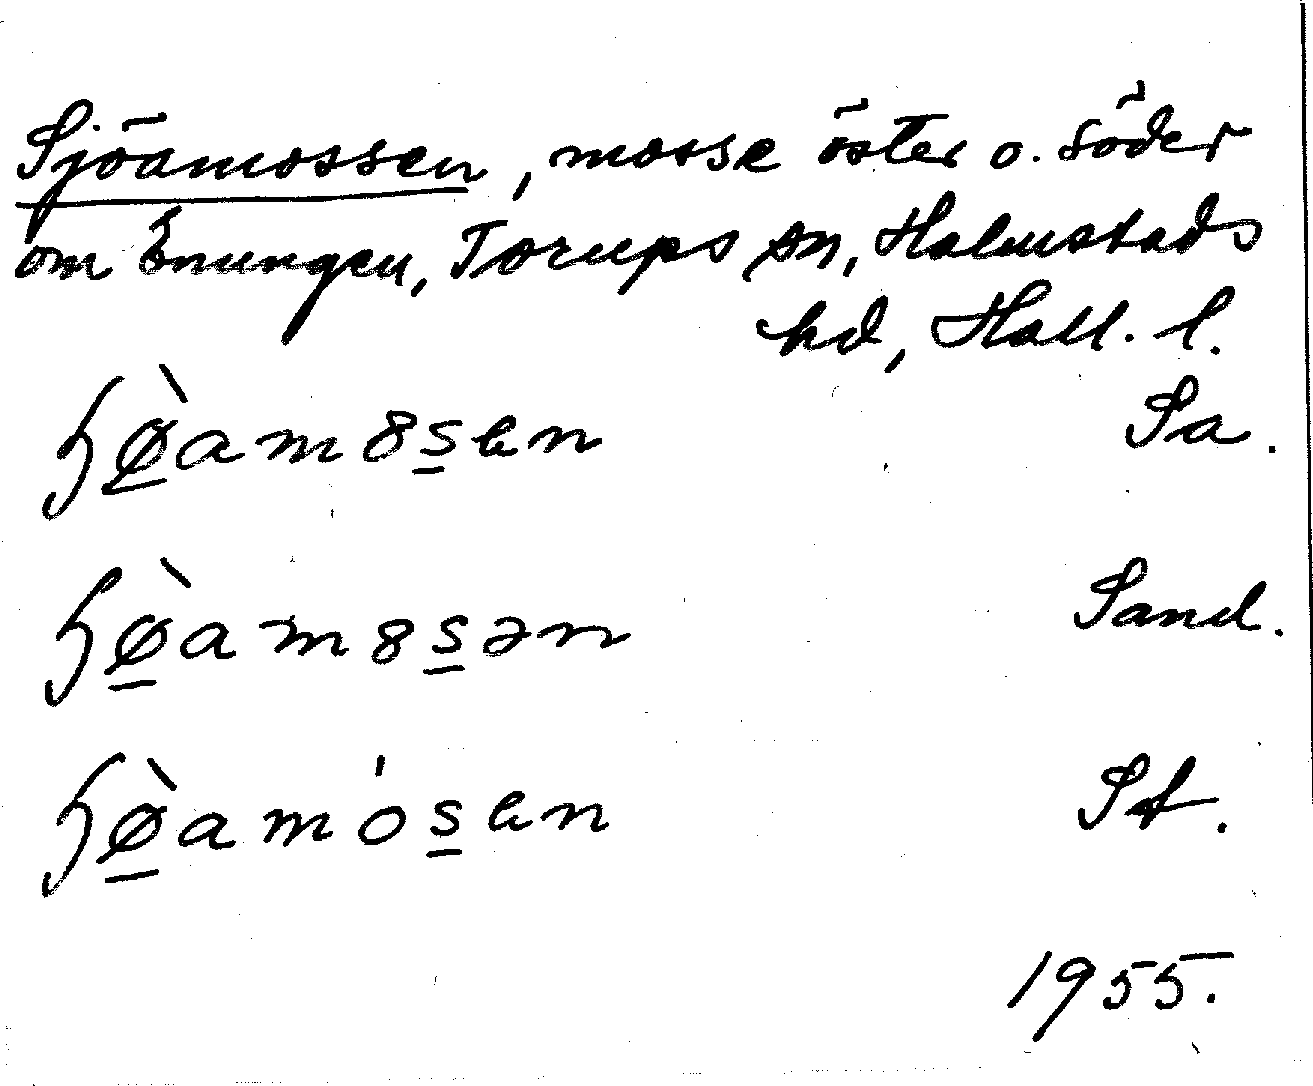 Sjöamossen, mosse öster o. söder
om Enungen, Torups sn, Halmstads
hd, Hall. l.
ɧø̲̀am8s̲en Sa.
ɧø̲̀am8s̲ən Sand.
ɧø̲̀amós̲en St.
1955.